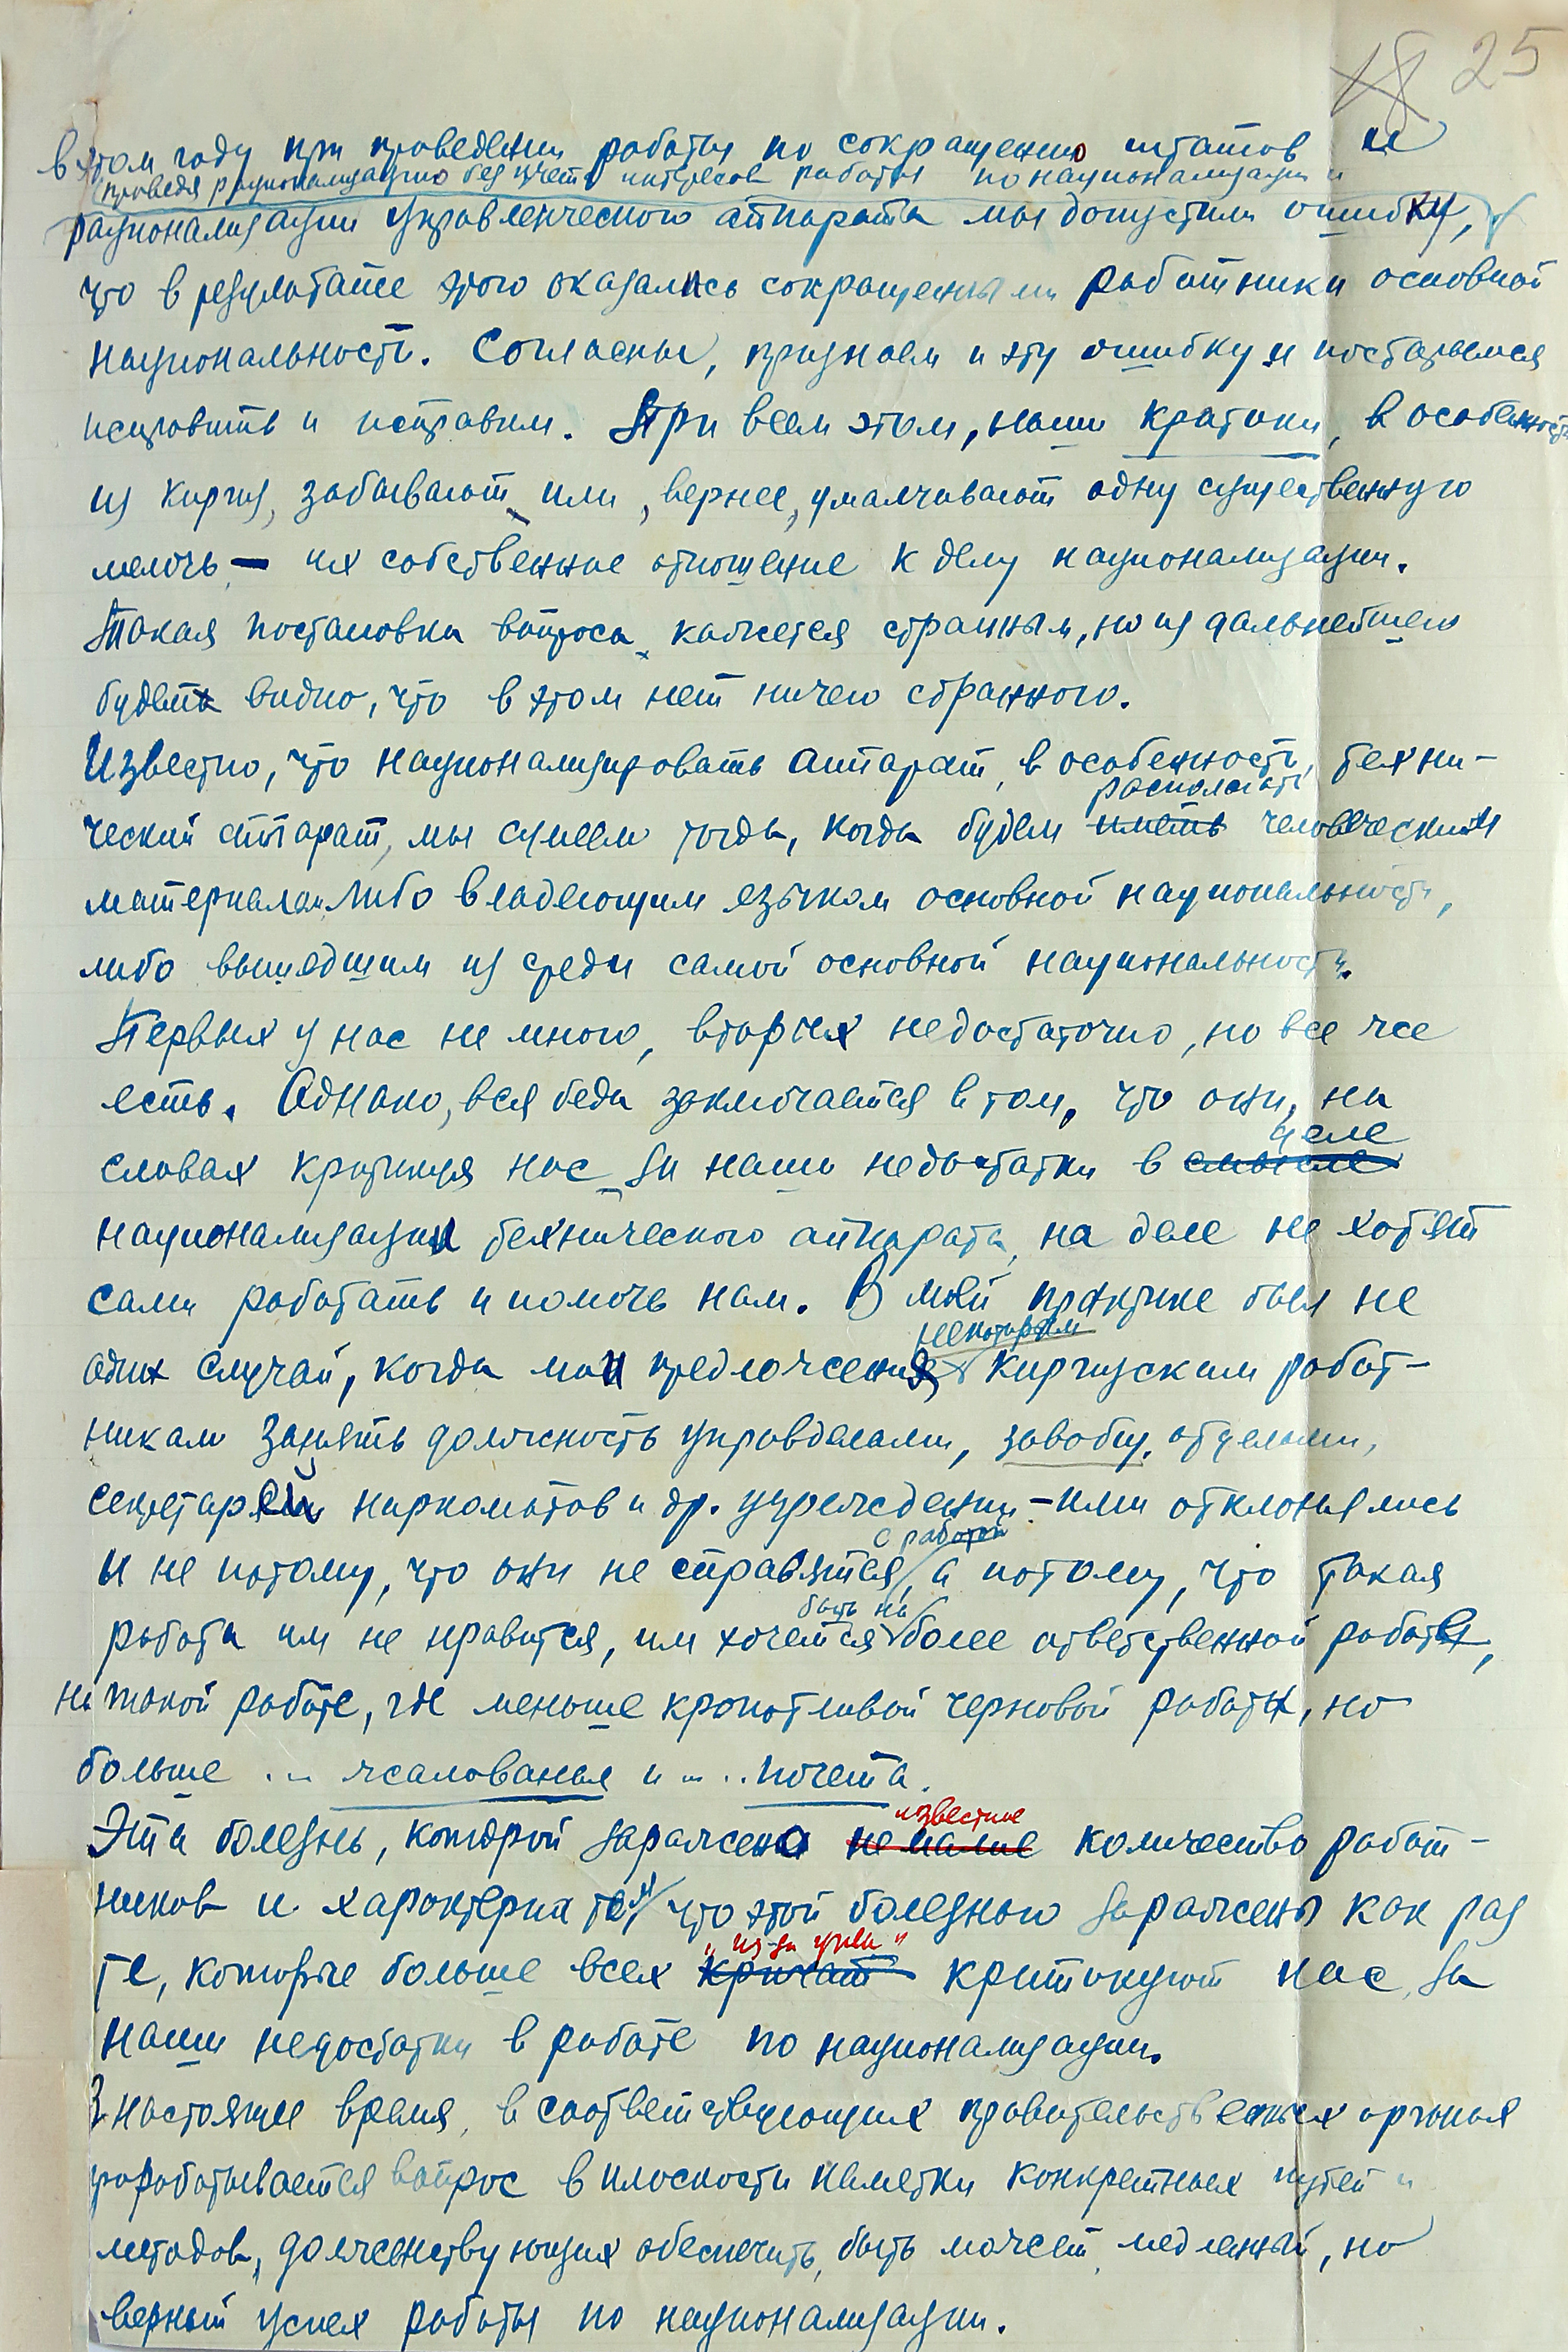 18 25
в этом году при проведении работы по сокращению штатов и
проведя рационализацию без учета интересов работы по национализации и
рационализации управленческого аппарата мы допустили ошибку,
что в результате этого оказались сокращенными работники основной
национальности. Согласны, признаем и эту ошибку и постараемся
исправить и исправим. При всем этом, наши критики, в особенности
из киргиз, забывают или, вернее, умалчивают одну существенную
мелочь – их собственное отношение к делу национализации.
Такая постановка вопроса кажется странным, но из дальнейшего
будет видно, что в этом нет ничего странного.
Известно, что национализировать аппарат, в особенности, техни-
располагать
ческий аппарат, мы сумеем тогда, когда будем иметь человеческим
материалом либо владеющим языком основной национальности,
либо вышедшим из среды самой основной национальности.
Первых у нас не много, вторых недостаточно, но все же
есть. Однако, вся беда заключается в том, что они, на
деле
словах критикуя нас за наши недостатки в смысле
национализации технического аппарата, на деле не хотят
сами работать и помочь нам. В моей практике был не
некоторым
один случай, когда мои предложения киргизским работ-
никам занять должность управделами, завобщ. отделами,
секретарей наркоматов и др. учреждений – ими отклонялись
с работой
и не потому, что они не справятся, а потому, что такая
быть на
работа им не нравится, им хочется более ответственной работе,
на такой работе, где меньше кропотливой черновой работы, но
больше ... жалованья и ... почета.
известное
Эта болезнь, которой заражено не малое количество работ-
ников и характерна тем, что этой болезнью заражены как раз
"из-за угла"
те, которые больше всех кричат критикуют нас за
наши недостатки в работе по национализации.
В настоящее время, в соответствующих правительственных органах
прорабатывается вопрос в плоскости наметки конкретных путей и
методов, долженствующих обеспечить, быть может медленный, но
верный успех работы по национализации.